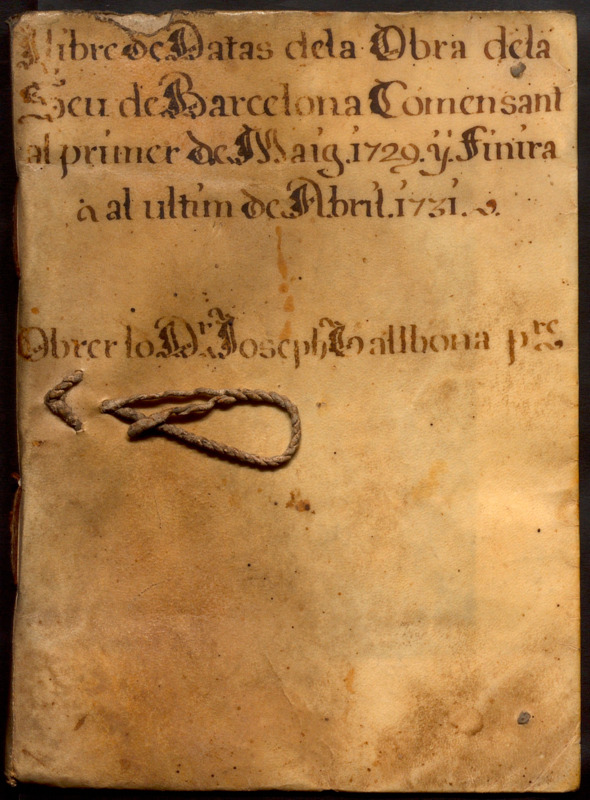 Llibre de Datas dela Obra dela
Seu de Barcelona Comensant
al primer de Maig.1729.ÿ.Finira
a al ultim de Abril.1731.
Obrer lo Dr. Joseph Vallbona pre